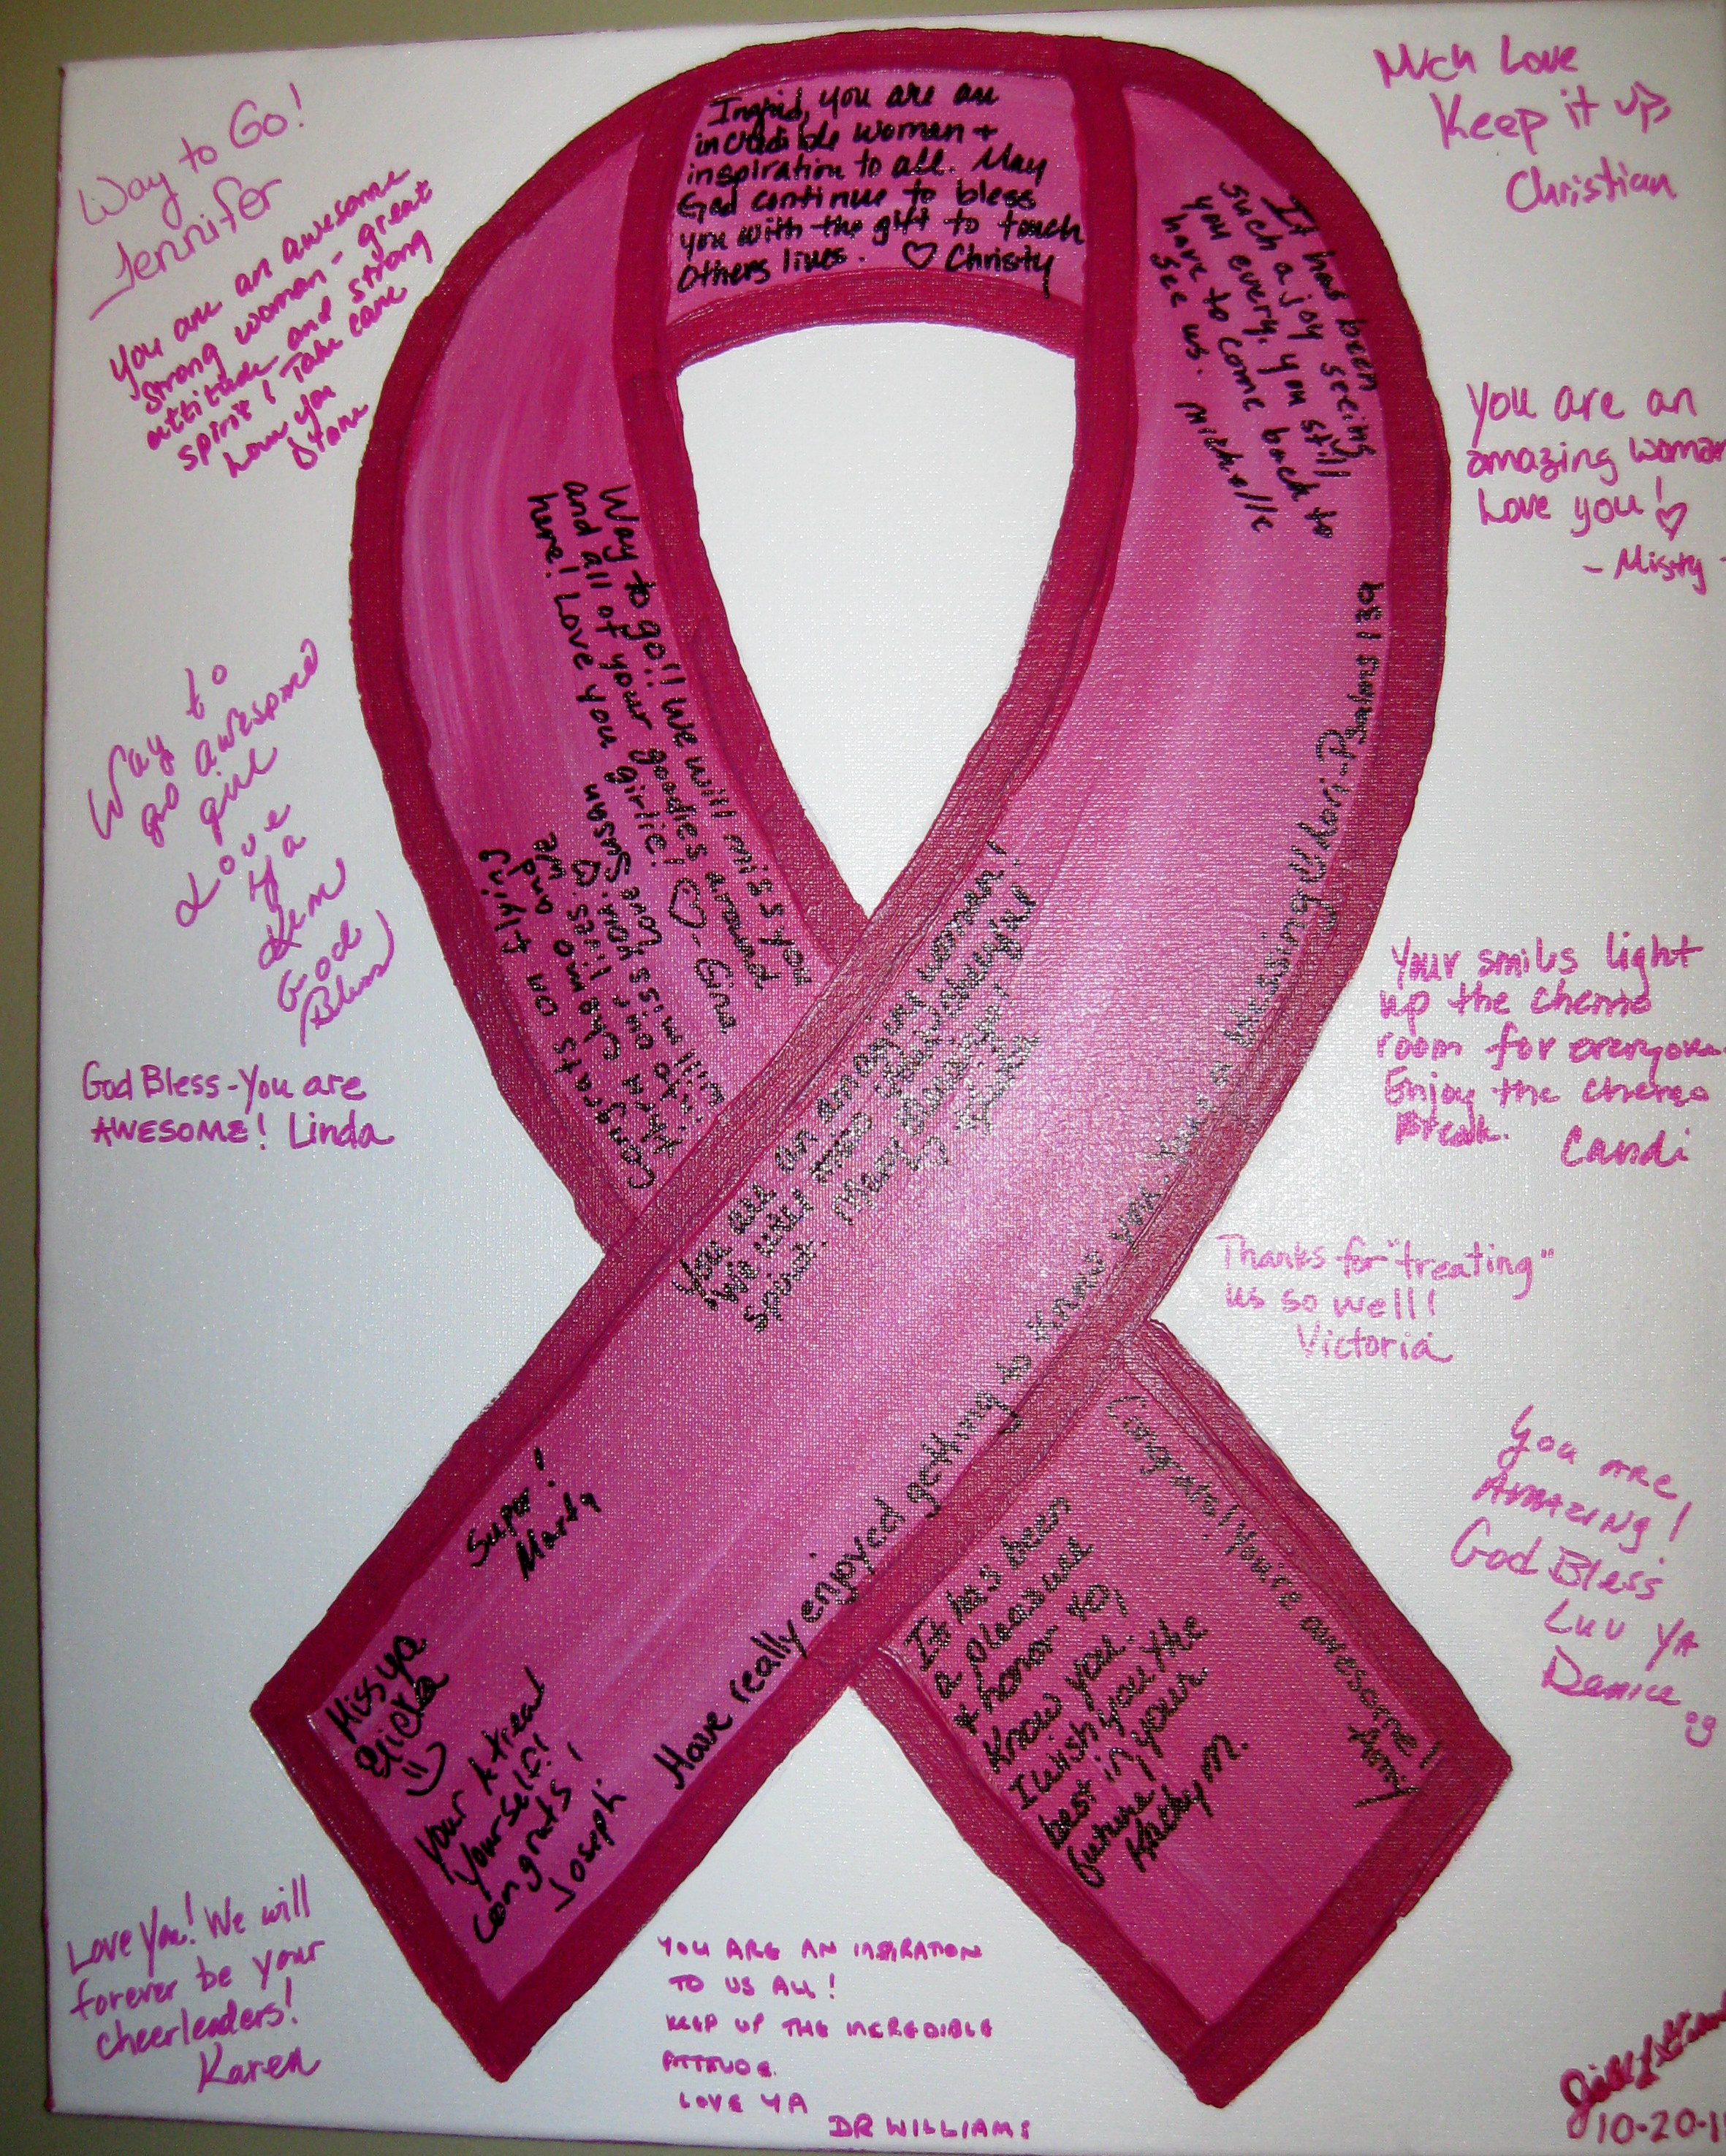 Way to Go!
Jennifer
You are an awesome
strong woman - great
attitude and strong
spirit! Take care
Love you
Diane
Way to
go awesome
girl
Love
Ya
Kim
God
Bless
God Bless - You are
AWESOME! Linda
Love You! We will
forever be your
cheerleaders!
Karen
Ingrid, you are an
incredible women +
inspiration to all. May
God continue to bless
you with the gift to touch
others lives. ♡ Christy
It has been
such a joy seeing
you every. you still
have to come back to
see us. Michelle
Way to go!! We will miss you
and all of your goodies around
here! Love you girlie! ♡ -
Congrats on flying
thru chemo and
into our lives. ♡ We
will miss you.
Love Susan
You are an amazing women!
We will miss your cheerful
spirit.
Many Blessings!
Have really enjoyed getting to know you. You're a blessing Lori - Psalms 139
Super!
Marty
Miss ya
Ericka
Your A treat
Yourself!
Congrats!
Joseph
Congrats! You're awesome!
Amy
It has been
a pleasure
+ honor to
know you.
I wish you the
best in your
future
Kathy M.
YOU ARE AN INSPIRATION
TO US ALL!
KEEP UP THE INCREDIBLE
ATTITUDE.
LOVE YA
DR WILLIAMS
Much Love
Keep it up,
Christian
You are an
amazing woman
Love you! ♡
- Misty -
Your smiles light
up the chemo
room for everyone.
Enjoy the chemo
Break. Candi
Thanks for "treating"
us so well!
Victoria
You are
AMAZING!
God Bless
Luv YA
Denice
10-20-11